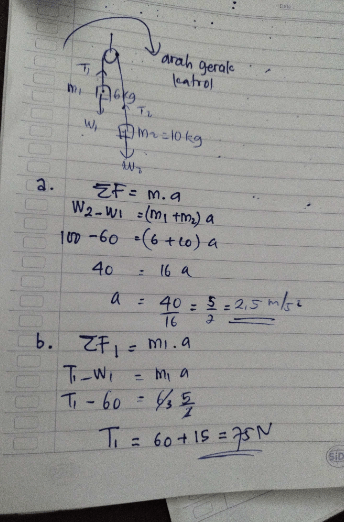 arah gerak
katrol
T₁
m₁ 6 kg
T₂
W₁
m₂ = 10 kg
W₂
a. ΣF = m.a
W₂ - W₁ = (m₁ + m₂) a
100 - 60 = (6 + 10) a
40 = 16 a
a = 40/16 = 5/2 = 2,5 m/s²
b. ΣF₁ = m₁ . a
T₁ - W₁ = m₁ a
T₁ - 60 = 6 3 5/2
T₁ = 60 + 15 = 75 N
SiD